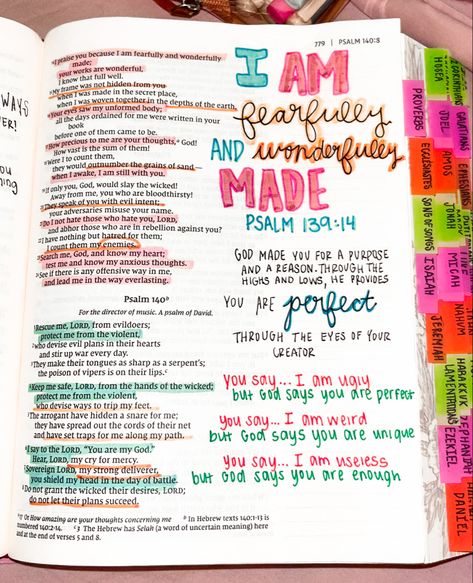 779 | PSALM 140:8
WAYS
VER!
ing
14 I praise you because I am fearfully and wonderfully
made;
your works are wonderful,
I know that full well.
15 My frame was not hidden from you
when I was made in the secret place,
when I was woven together in the depths of the earth.
16 Your eyes saw my unformed body;
all the days ordained for me were written in your
book
before one of them came to be.
17 How precious to me are your thoughts,a God!
How vast is the sum of them!
18 Were I to count them,
they would outnumber the grains of sand—
when I awake, I am still with you.
19 If only you, God, would slay the wicked!
Away from me, you who are bloodthirsty!
20 They speak of you with evil intent;
your adversaries misuse your name.
21 Do I not hate those who hate you, LORD,
and abhor those who are in rebellion against you?
22 I have nothing but hatred for them;
I count them my enemies.
23 Search me, God, and know my heart;
test me and know my anxious thoughts.
24 See if there is any offensive way in me,
and lead me in the way everlasting.
Psalm 140b
For the director of music. A psalm of David.
1 Rescue me, LORD, from evildoers;
protect me from the violent,
2 who devise evil plans in their hearts
and stir up war every day.
3 They make their tongues as sharp as a serpent's;
the poison of vipers is on their lips.c
4 Keep me safe, LORD, from the hands of the wicked;
protect me from the violent,
who devise ways to trip my feet.
5 The arrogant have hidden a snare for me;
they have spread out the cords of their net
and have set traps for me along my path.
6 I say to the LORD, "You are my God."
Hear, LORD, my cry for mercy.
7 Sovereign LORD, my strong deliverer,
you shield my head in the day of battle.
8 Do not grant the wicked their desires, LORD;
do not let their plans succeed.
a 17 Or How amazing are your thoughts concerning me
b In Hebrew texts 140:1-13 is
numbered 140:2-14.
c 3 The Hebrew has Selah (a word of uncertain meaning) here
and at the end of verses 5 and 8.
I AM
fearfully
AND wonderfully
MADE
PSALM 139:14
GOD MADE YOU FOR A PURPOSE
AND A REASON. THROUGH THE
HIGHS AND LOWS, HE PROVIDES
YOU ARE perfect
THROUGH THE EYES OF YOUR
CREATOR
you say... I am ugly
but God says you are perfect
you say... I am weird
but God says you are unique
you say... I am useless
but God says you are enough
PROVERBS
ECCLESIASTES
SONG OF SONGS
ISAIAH
JEREMIAH
LAMENTATIONS
EZEKIEL
DANIEL
HOSEA
JOEL
AMOS
JONAH
MICAH
NAHUM
HABAKKUK
ZEPHANIAH
2 CORINTHIANS
GALATIANS
EPHESIANS